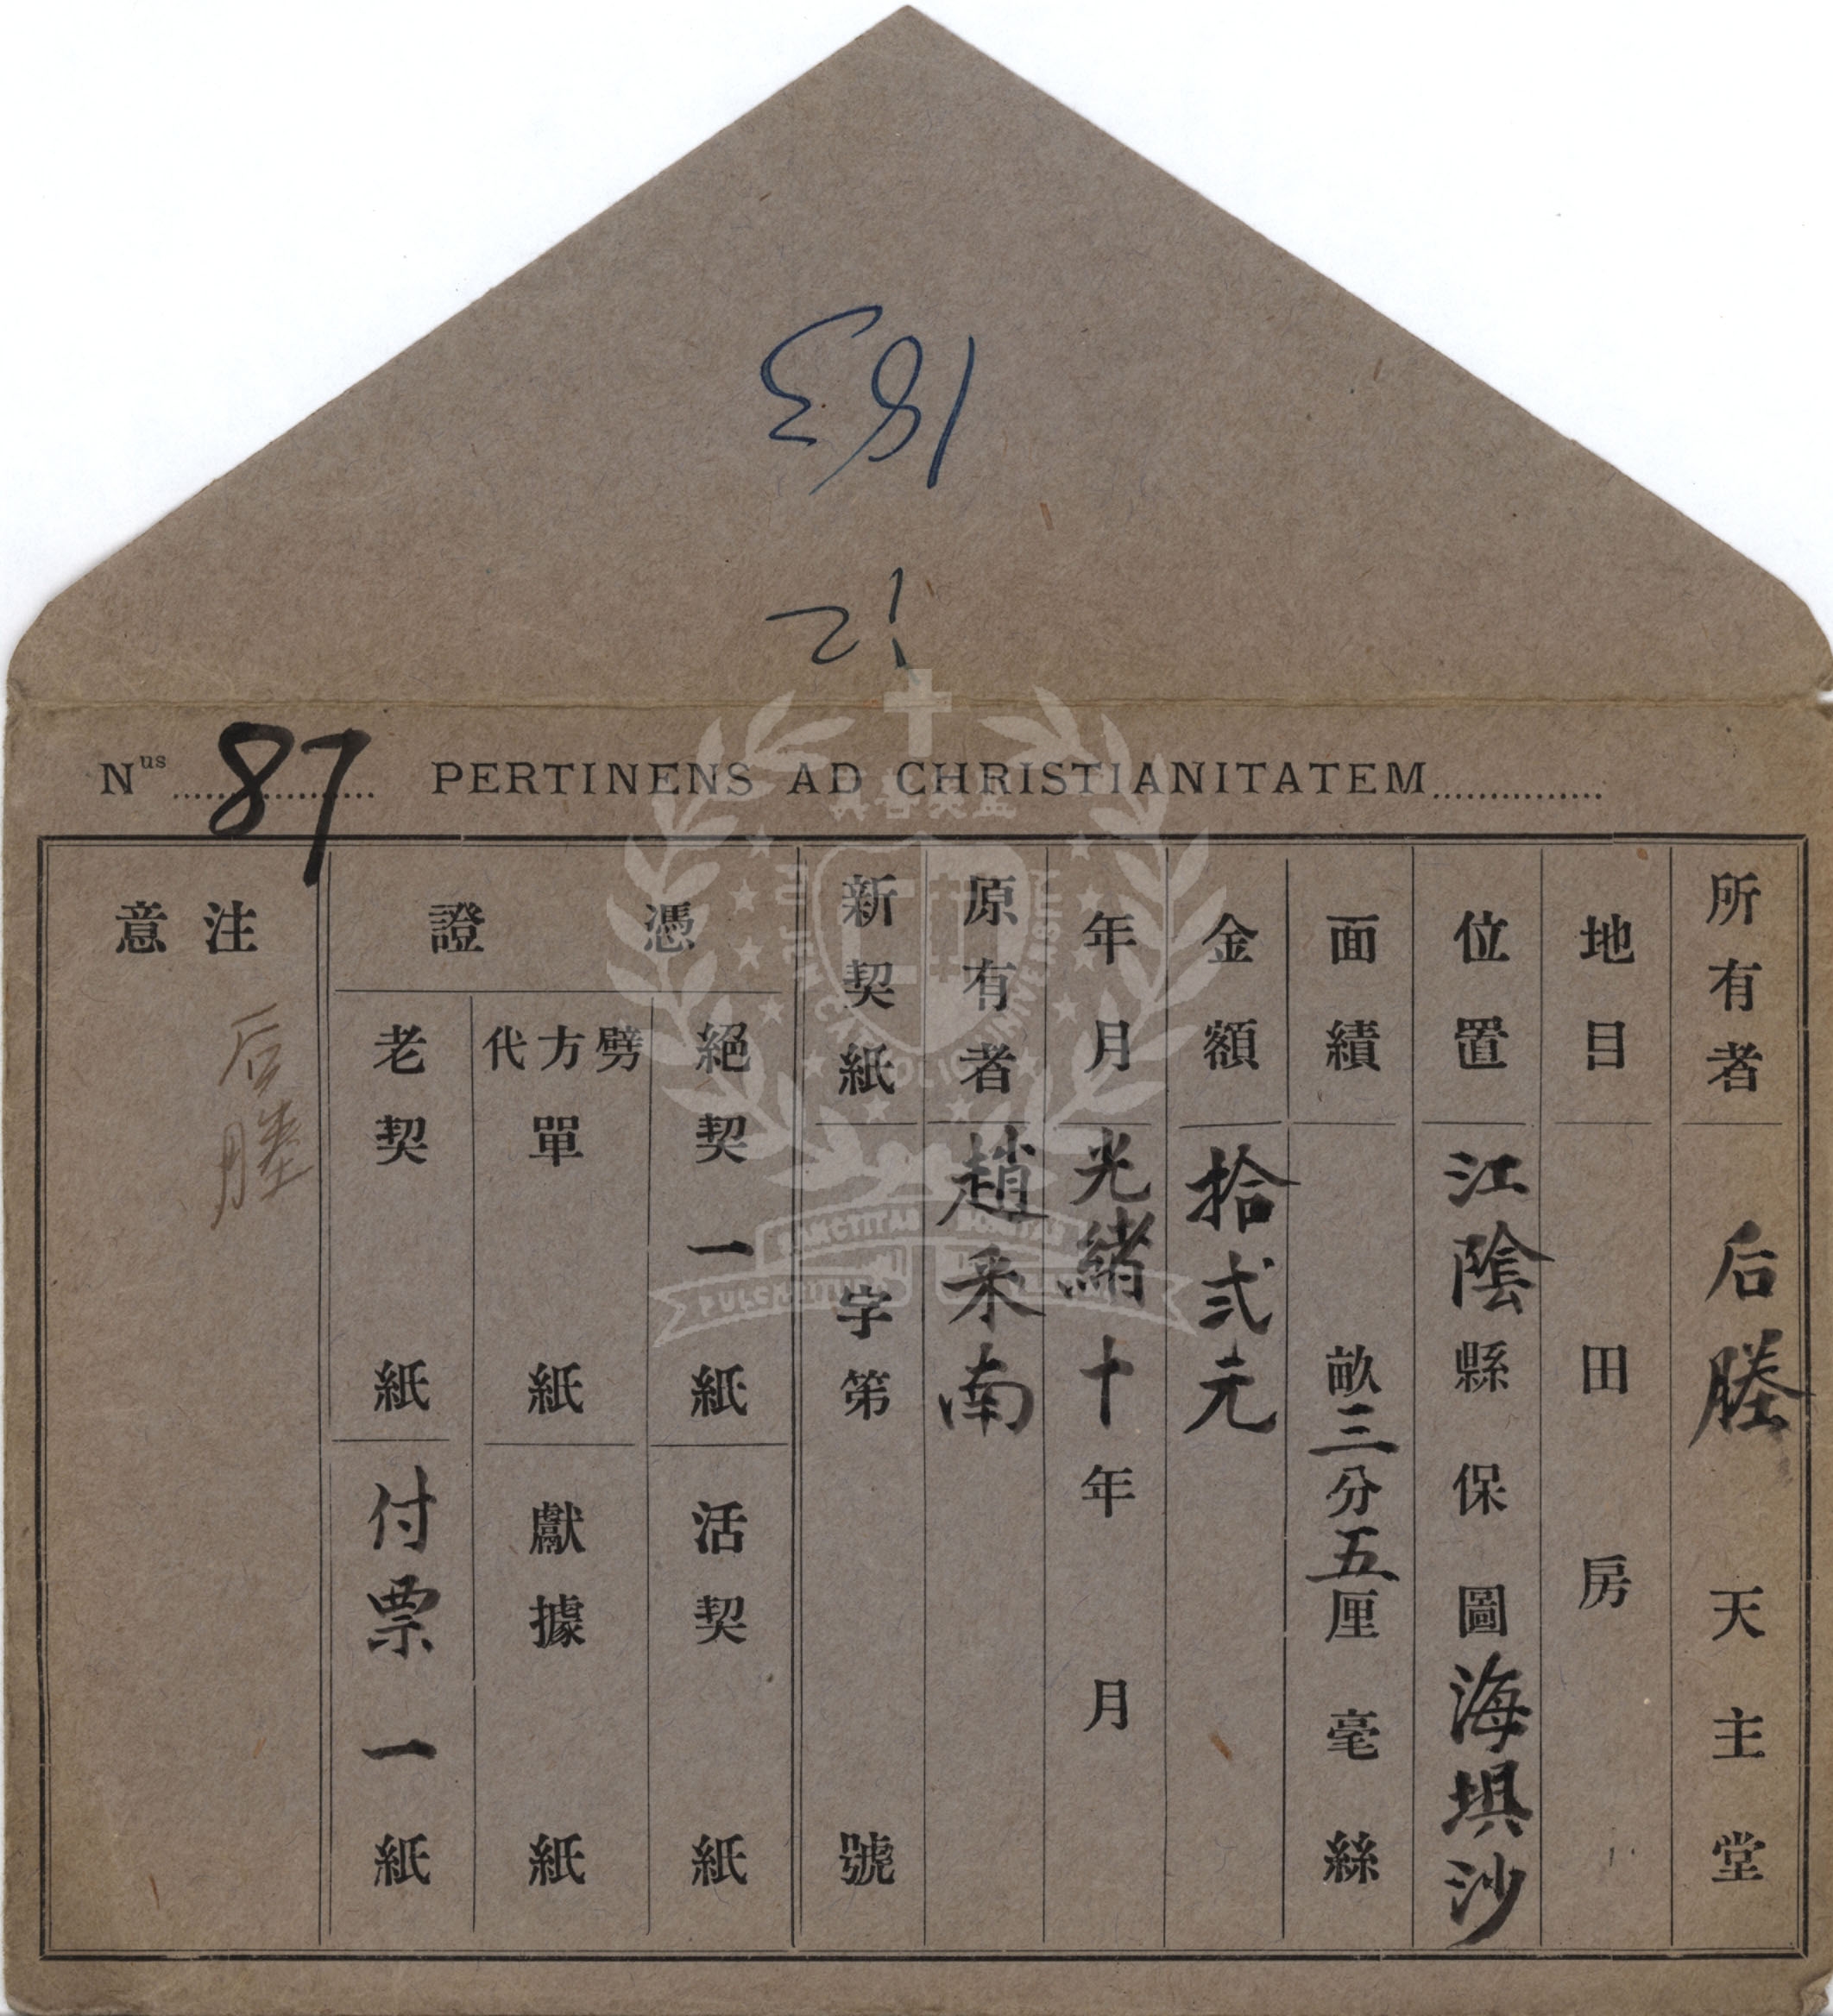 183
12
Nus 87 PERTINENS AD CHRISTIANITATEM
所有者 后塍天主堂
地目 田房
位置 江陰縣保圖海埧沙
面績 畝三分五厘毫絲
金額 拾弍元
年月 光緒十年月
原有者 趙釆南
新契紙 字第號
憑證
絕契一紙
活契紙
劈方代單紙
獻據紙
老契紙
付票一紙
注意
后塍
FU JEN CATHOLIC UNIVERSITY
SANCTITAS BONITAS